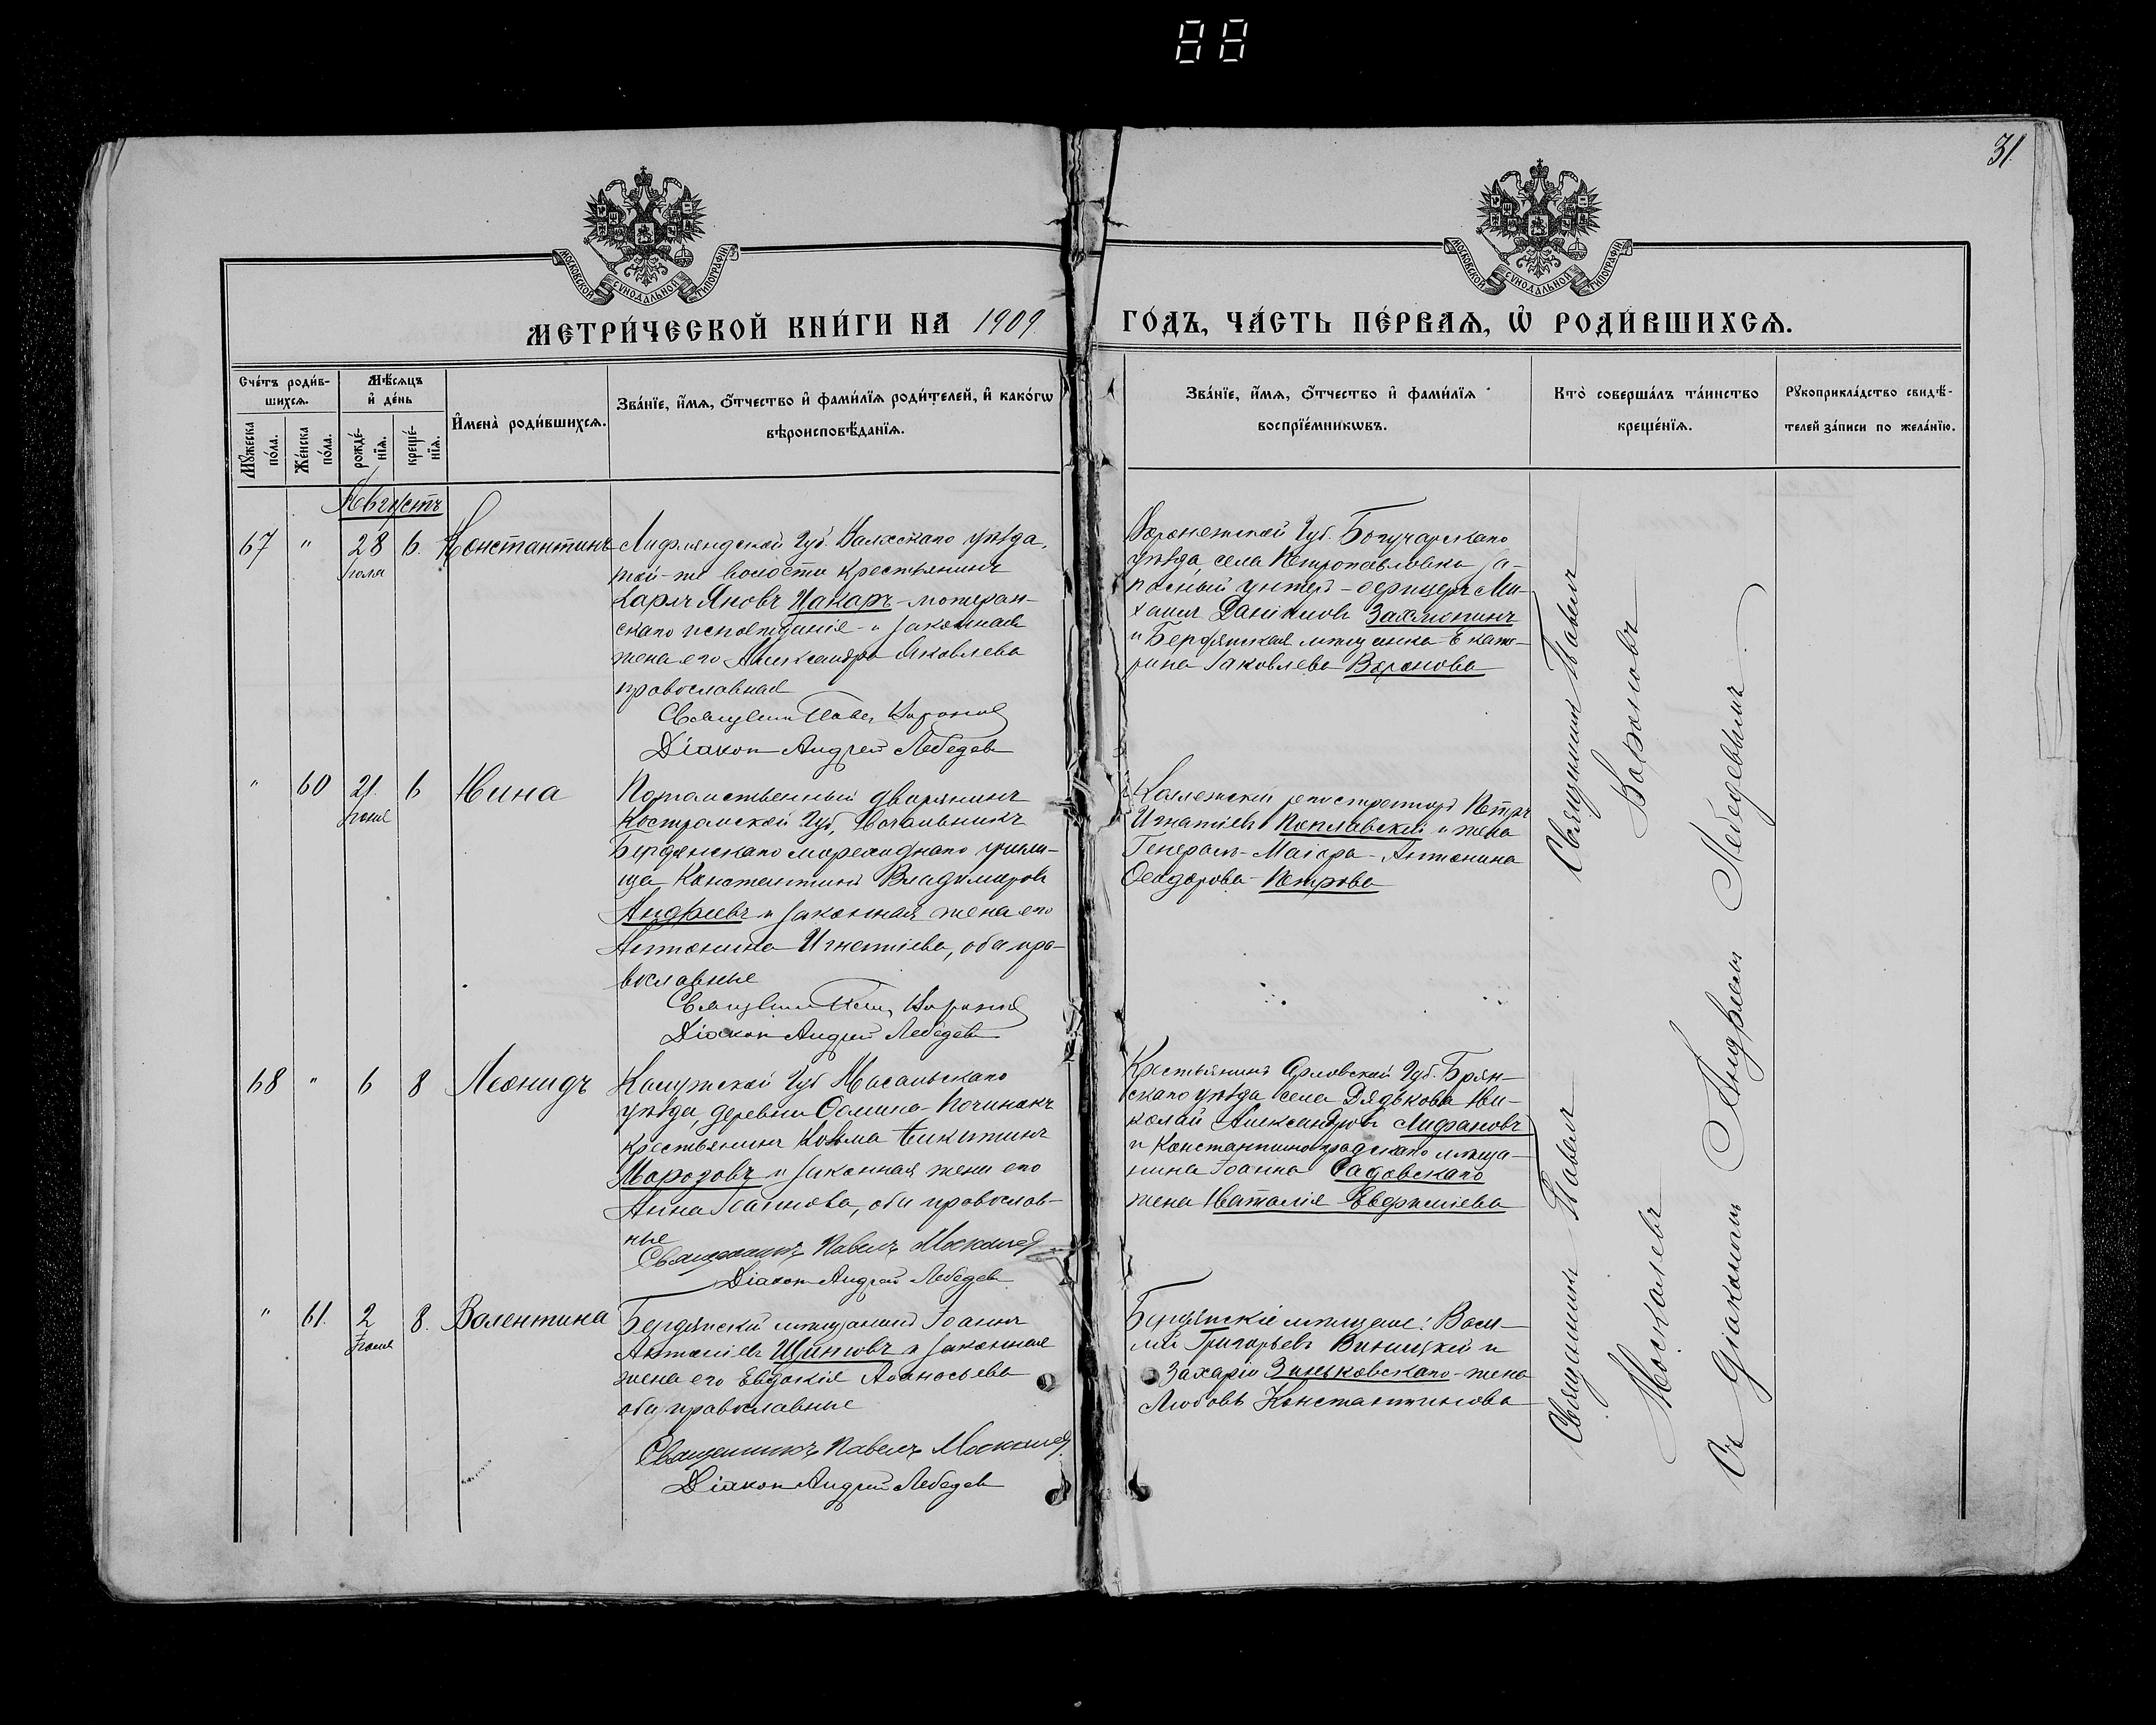 88
31.
МОСКОВСКОЙ СѴНОДАЛЬНОЙ ТИПОГРАФІИ
МОСКОВСКОЙ СѴНОДАЛЬНОЙ ТИПОГРАФІИ
МЕТРИ́ЧЕСКОЙ КНИ́ГИ НА 1909
ГО́ДЪ, ЧА́СТЬ ПЕ́РВАѦ, Ѡ҆ РОДИ́ВШИХСѦ.
Сче́тъ роди́в-
шихсѧ.
Мꙋ́жеска по́ла.
Же́нска по́ла.
Мѣ́сѧцъ
и҆ де́нь
рожде́-
нїѧ.
креще́-
нїѧ.
И҆мена̀ роди́вшихсѧ.
Зва́нїе, и҆́мѧ, ѻ҆́тчество и҆ фами́лїѧ роди́телей, и҆ како́гѡ
вѣроисповѣ́данїѧ.
Зва́нїе, и҆́мѧ, ѻ҆́тчество и҆ фами́лїѧ
воспрїе́мникѡвъ.
Кто̀ соверша́лъ та́инство
креще́нїѧ.
Рꙋкоприкла́дство свидѣ́-
телей за́писи по жела́нїю.
Августъ
67 " 28 Іюля 6. Константинъ
Лифляндской Губ. Валкскаго уѣзда,
той-же волости крестьянинъ
Карлъ Яковъ Цакаръ - лютеран-
скаго исповѣданія - и законная
жена его Александра Яковлева
православная
Священникъ Павелъ Воронов
Діакон Андрей Лебедев
Воронежской Губ. Богучарскаго
уѣзда, села Петропавловки за-
пасный унтер-офицеръ Ми-
хаилъ Данiилов
и Бердянская мѣщанка Екате-
рина Іаковлева Воронова
Священникъ Павелъ
Вороновъ
" 60 21. Іюля 6 Нина
Потомственный дворянинъ
Костромской Губ., Начальникъ
Бердянскаго мореходнаго учили-
ща, Константинъ Владимировъ
Андреевъ и законная жена его
Антонина Игнатіева, оба пра-
вославные
Священникъ Павелъ Воронов
Діакон Андрей Лебедев
Коллежскій регистраторъ Петръ
Игнатіевъ Поплавский и жена
Генерал-Маіора - Антонина
Ѳеодорова Петрова
68 " 6 8 Леонидъ
Калужской Губ Мосальскаго
уѣзда, деревни Починокъ
крестьянинъ Козьма Никитинъ
Морозовъ и законная жена его
Анна Іоаннова, оба православ-
ные
Священникъ Павелъ Москалев
Діакон Андрей Лебедев
Крестьянинъ Орловской Губ. Брян-
скаго уѣзда села Дядькова Ни-
колай Александровъ Лифановъ
и Константиноградскаго мѣща-
нина Іоанна Садовскаго
жена Наталія Евфиміева
Священникъ Павелъ
Москалевъ
Съ Діакономъ Андреемъ Лебедевымъ
" 61. 2 Іюля 8. Валентина
Бердянскій мѣщанинъ Іоаннъ
Антоніевъ Щитовъ и законная
жена его Евдокія Аѳанасьева
оба православные
Священникъ Павелъ Москалев
Діакон Андрей Лебедев
Бердянскіе мѣщане: Васи-
лій Григорьевъ Виницкій и
Захарія Зиньковскаго - жена
Любовь Константинова